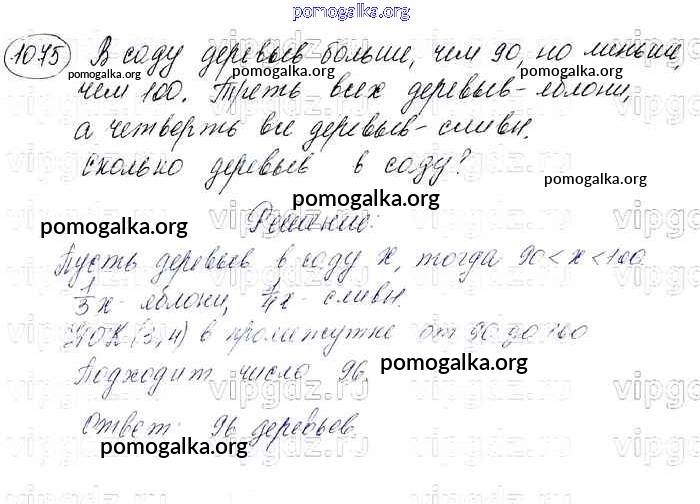 pomogalka.org
1075 В саду деревьев больше, чем 90, но меньше,
чем 100. Треть всех деревьев - яблони,
а четверть все деревьев - сливы.
Сколько деревьев в саду?
Решение:
Пусть деревьев в саду x, тогда 90 < x < 100
1/3 x - яблони, 1/4 x - сливы.
НОК (3,4) в промежутке от 90 до 100
Подходит число 96.
Ответ: 96 деревьев.
pomogalka.org
pomogalka.org
pomogalka.org
pomogalka.org
pomogalka.org
pomogalka.org
pomogalka.org
pomogalka.org
vipgdz.ru